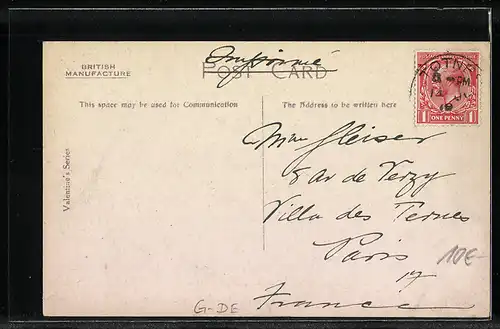 BRITISH
MANUFACTURE
Imprimé
POST CARD
This space may be used for Communication
The Address to be written here
Valentine's Series
1 ONE PENNY 1
Gleiser
8 Av de Verzy
Villa des Ternes
Paris
17
France
10E-
G-DE